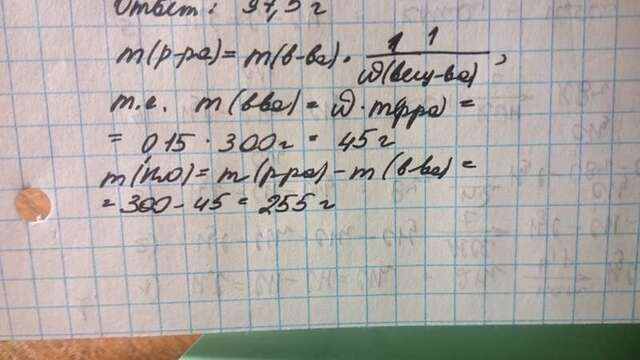 Ответ: 97,5 г
m(р-ра) = m(в-ва) · 1/ω(вещ-ва),
т.е. m(вва) = ω · m(рра) =
= 0,15 · 300 г = 45 г
m(H₂O) = m(рра) - m(в-ва) =
= 300 - 45 = 255 г